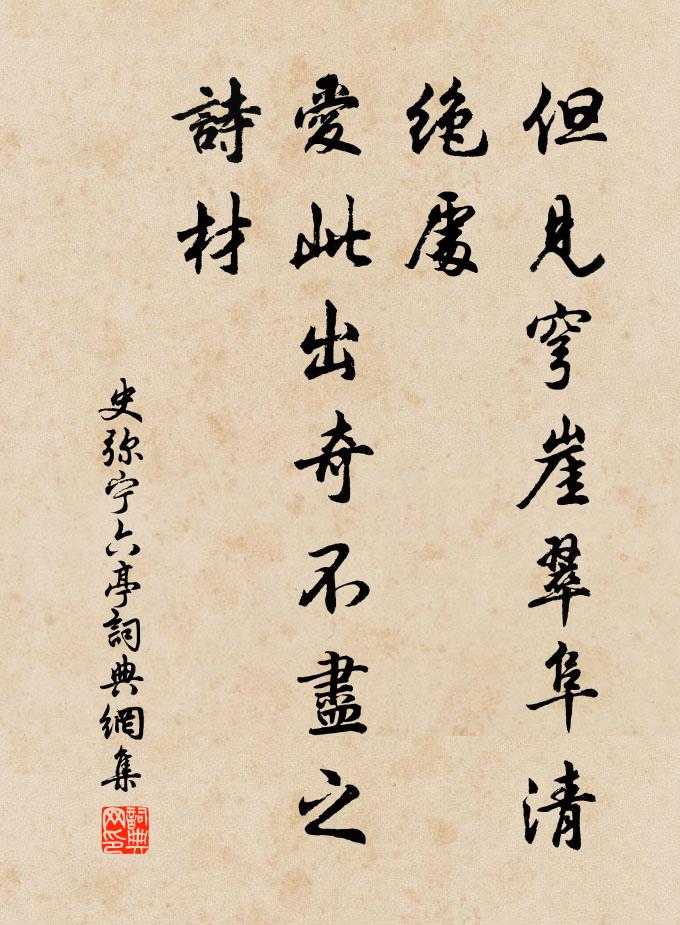 但見穹崖翠阜清
絶處
愛此出奇不盡之
詩材
史弥宁六亭詞典網集
詞典
网印